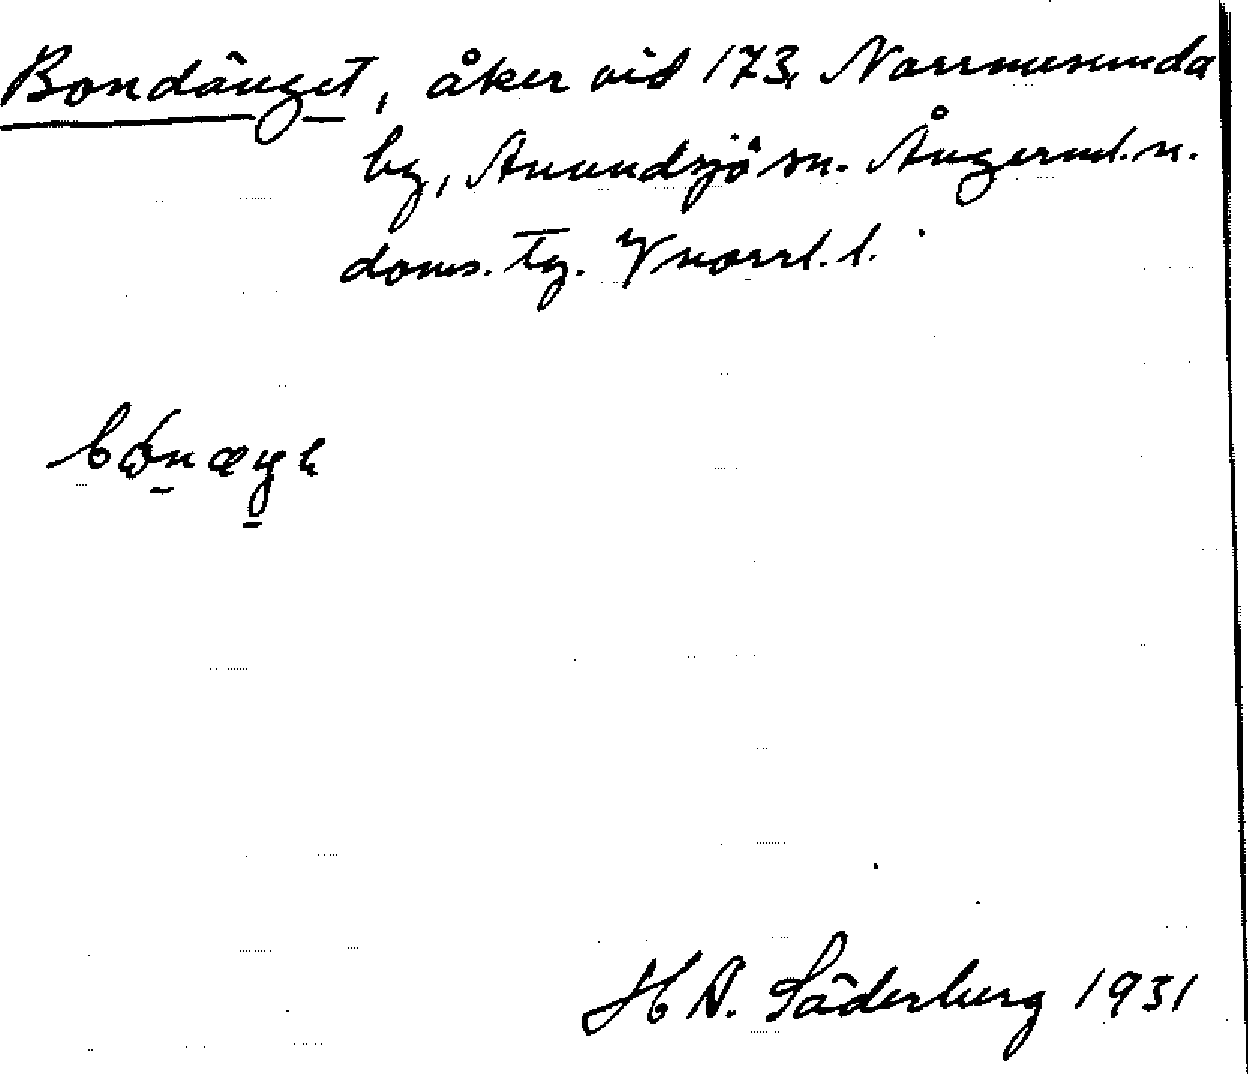 Bondänget, åker vid 173, Norrmesunda
by, Anundsjö sn. Ångerml. n.
doms. Tg. Vnorrl. l.
H A. Söderberg 1931